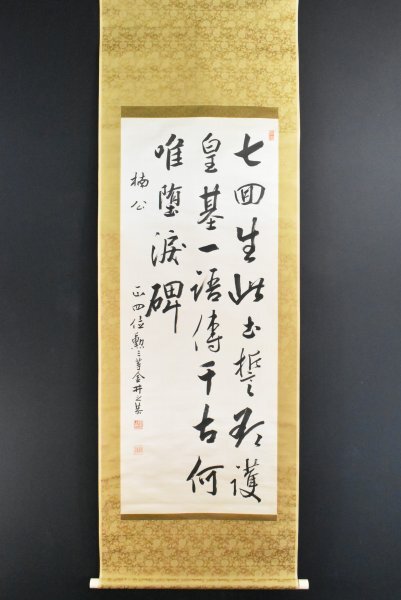 七回生此土誓不護
皇基一語傳千古何
唯墮淚碑
楠公
正四位勲三等金井之恭